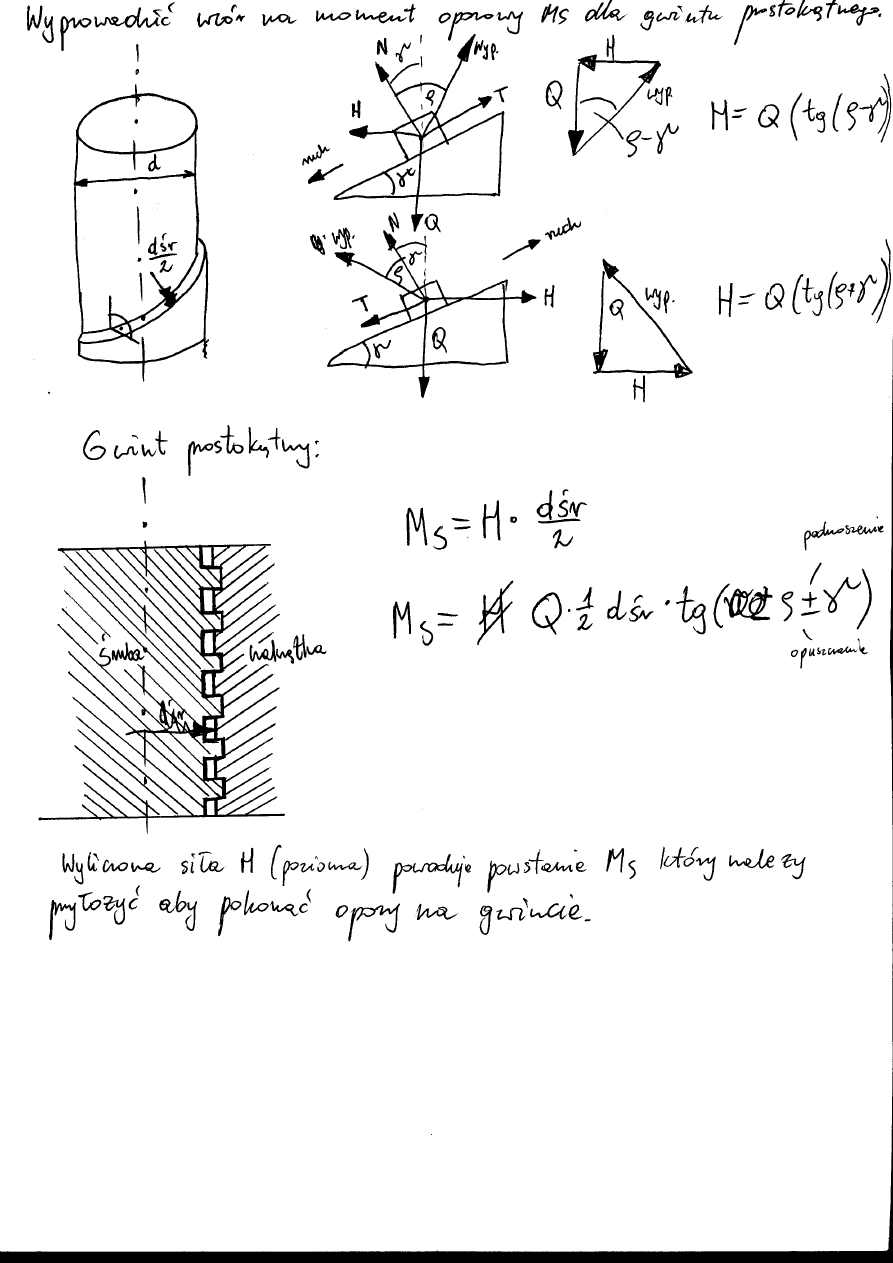 Wyprowadzić wzór na moment oporowy Ms dla gwintu prostokątnego.
d
dśr/2
N γ ρ wyp.
H T
ruch
γ
Q
H
Q wyp
ρ-γ
H = Q (tg(ρ-γ))
wyp. N γ ρ
ruch
T H
γ Q
Q wyp.
H
H = Q (tg(ρ+γ))
Gwint prostokątny:
Ms = H · dśr/2
podnoszenie
Ms = Q · 1/2 dśr · tg(ρ ± γ)
opuszczanie
śruba nakrętka
dśr
Wyliczona siła H (pozioma) powoduje powstanie Ms który należy
przyłożyć aby pokonać opory na gwincie.